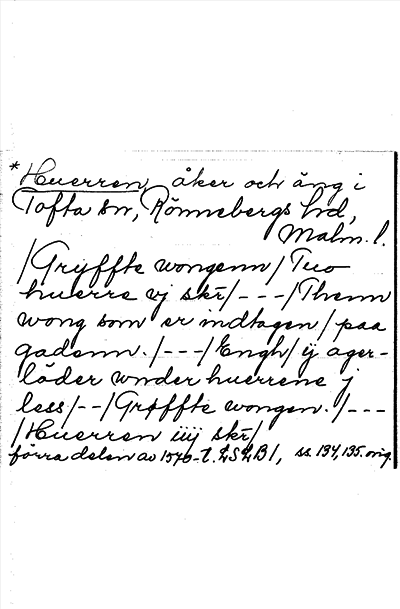 * Huerren, åker och äng i
Tofta sn, Rönnebergs hd,
Malm. l.
/Gryffte wongenn/ Tuo
huerre vj skr/ - - - /Thenn
wong som er indtagen/ paa
gadenn. /- - -/ Engh/ ij ager-
löder wnder huerrene j
less/ - - /Grøffte wongen. /- - -
/Huerren iiij skr/
förra delen av 1570-t. LSLB1, ss. 134, 135. orig.